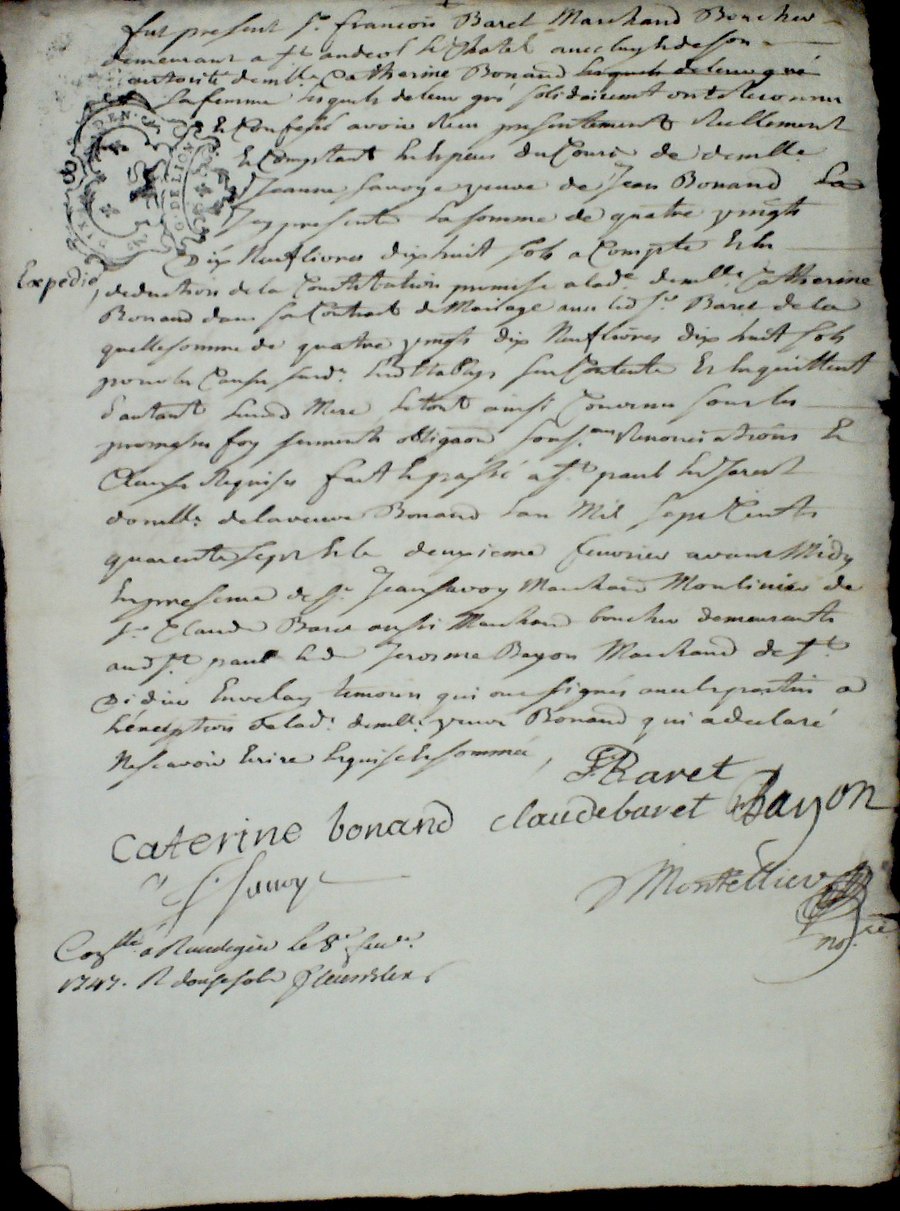 fut present Sr. francois Baret Marchand Boucher
demeurant a St. andeol le Chatel avec luy et de son
autorité demlle. Catherine Bonand lesquels de leur gré
sa femme lesquels de leur gré solidairement ont Reconnu
et Confessé avoir Reçu presentement Reellement
et Comptant
Jeanne Savoye veuve de Jean Bonand
Icy presente la somme de quatre vingts
Dix Neuf livres dix huit sols a Compte et en
Expedié
deduction de la Constitution promise a lade. demlle. Catherine
Bonand dans sa Contrat de Mariage avec led Sr. Baret de la
quelle somme de quatre vingts dix Neuf livres dix huit sols
pour les Causes susd. se Contente et en quittent
d'autant Mere le tout ainsi Convenu sous les
promesses foy serments obligaon. Renonciations et
Clauses Requises fait et passé a St. paul en Jarest
domlle. de la veuve Bonand l'an Mil Sept Cents
quarente sept et le deuxieme feuvrier avant Midy
En presence de Sr. Jean Savoy Marchand Moulinier de
Sr. Claude Baret aussi Marchand boucher demeurants
aud St. paul et de Jerosme Bayon Marchand de St.
Didier En velay temoins qui ont signés avec les parties a
l'exception de lade. demlle. veuve Bonand qui a declaré
Ne scavoir Ecrire Enquise et sommée
F Baret
Caterine bonand claude baret Bayon
J. Savoy
Montellier
nore.
Conllé. a Rivedegier le 8e. feuv.
1747. R douze sols
GEN DE LION